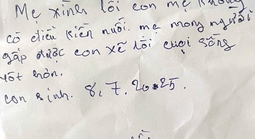 Mẹ xinh lỗi con mẹ không
có điều kiên nuôi. mẹ mong người
gặp được con xẽ lỗi cuọi sống
tốt hơn.
con sinh. 8,7,2025.